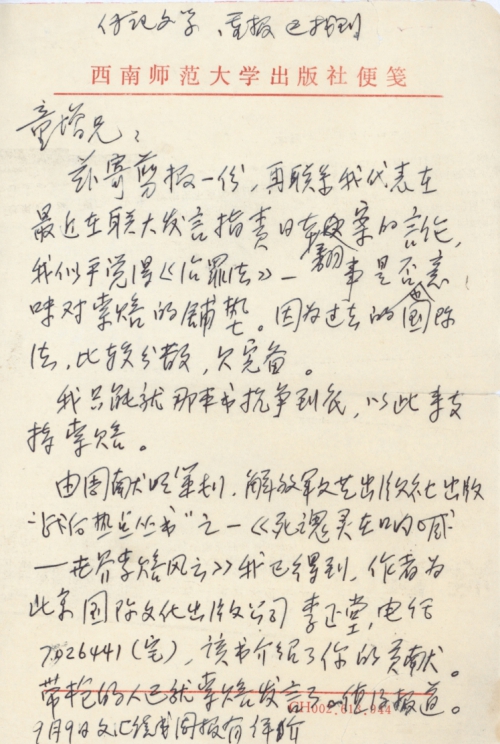 传记文学、画报已收到
西南师范大学出版社便笺
童增兄：
兹寄剪报一份，再联系我代表在
最近在联大发言指责日本翻案的言论，
我们乎觉得《治罪法》一事是否意
味对索赔的铺垫。因为过去的国际
法，比较分散，欠完备。
我只能就那本书抗争到底，以此来支
持索赔。
由周献明策划，解放军文艺出版社出版
"战后热点丛书"之一《死魂灵在呐喊
——世界索赔风云》我已得到，作者为
北京国际文化出版公司李正堂，电话
7026441(宅)，该书介绍了你的贡献。
带枪的人已就索赔发言了，值得报道。
CH002.012.044
9月9日文汇读书周报有评价